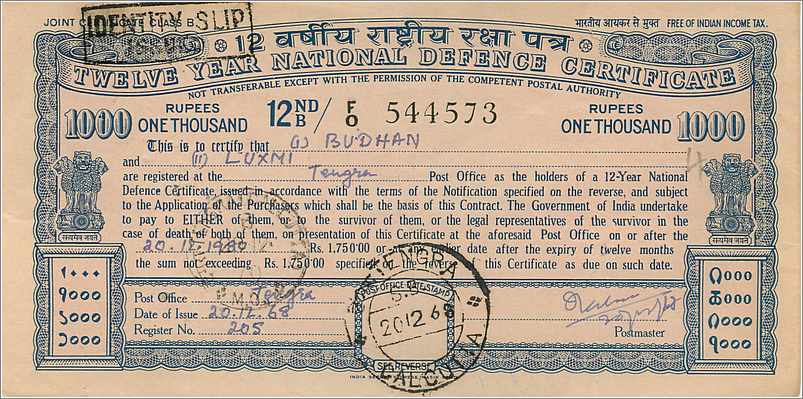 JOINT CERTIFICATE CLASS B
भारतीय आयकर से मुक्त FREE OF INDIAN INCOME TAX.
IDENTITY SLIP
12 वर्षीय राष्ट्रीय रक्षा पत्र
TWELVE YEAR NATIONAL DEFENCE CERTIFICATE
NOT TRANSFERABLE EXCEPT WITH THE PERMISSION OF THE COMPETENT POSTAL AUTHORITY
1000 RUPEES ONE THOUSAND 12 ND/B / F/O 544573 RUPEES ONE THOUSAND 1000
This is to certify that (i) BUDHAN
and (ii) LUXMI
are registered at the Tengra Post Office as the holders of a 12-Year National
Defence Certificate issued in accordance with the terms of the Notification specified on the reverse, and subject
to the Application for Purchase which shall be the basis of this Contract. The Government of India undertake
to pay to EITHER of them, to the survivor of them, or the legal representatives of the survivor in the
case of death of both of them, on presentation of this Certificate at the aforesaid Post Office on or after the
20.12.1980 Rs. 1,750.00 or earlier date after the expiry of twelve months
the sum not exceeding Rs. 1,750.00 specified on the reverse of this Certificate as due on such date.
सत्यमेव जयते
सत्यमेव जयते
१०००
Post Office Tengra
Date of Issue 20.12.68
Register No. 205
POST OFFICE DATE STAMP
TENGRA
20 12 68
CALCUTTA
SEE REVERSE
Postmaster